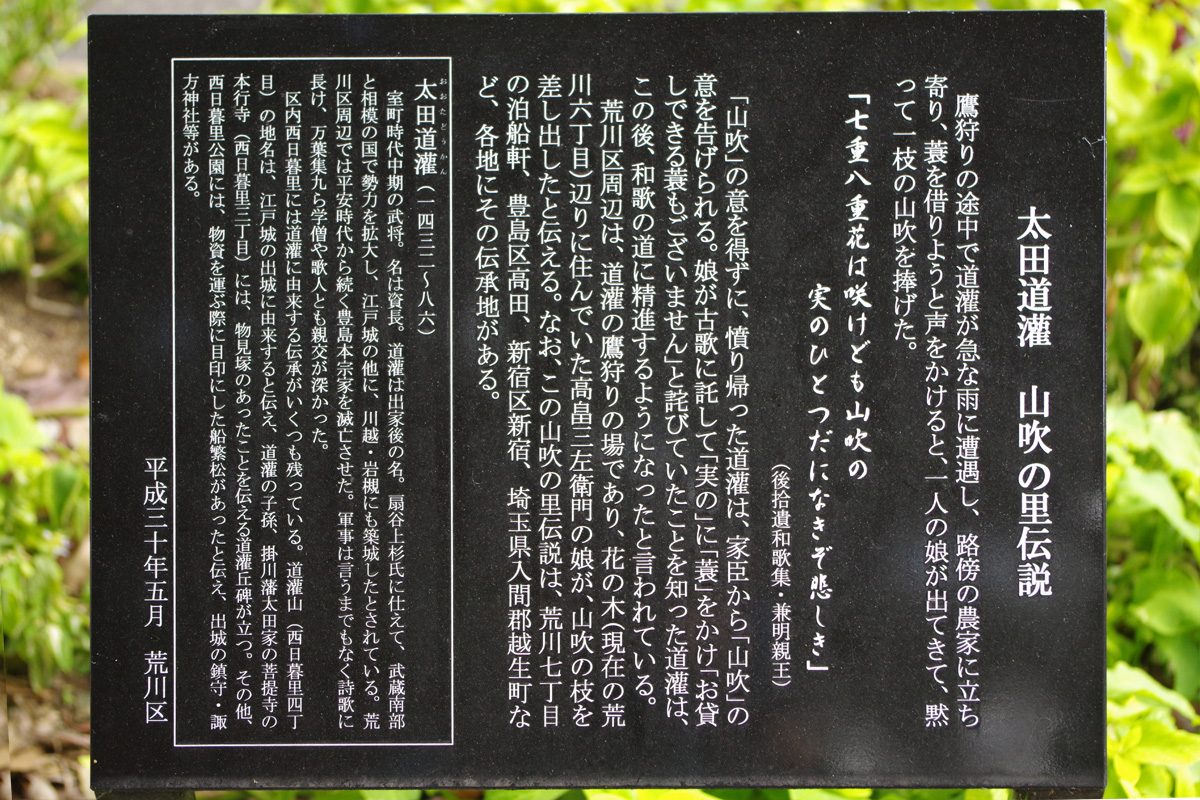 太田道灌　山吹の里伝説
鷹狩りの途中で道灌が急な雨に遭遇し、路傍の農家に立ち
寄り、蓑を借りようと声をかけると、一人の娘が出てきて、黙
って一枝の山吹を捧げた。
「七重八重花は咲けども山吹の
実のひとつだになきぞ悲しき」
（後拾遺和歌集・兼明親王）
「山吹」の意を得ずに、憤り帰った道灌は、家臣から「山吹」の
意を告げられる。娘が古歌に託して「実の」に「蓑」をかけ「お貸
しできる蓑もございません」と詫びていたことを知った道灌は、
この後、和歌の道に精進するようになったと言われている。
荒川区周辺は、道灌の鷹狩りの場であり、花の木（現在の荒
川六丁目）辺りに住んでいた高畠三左衛門の娘が、山吹の枝を
差し出したと伝える。なお、この山吹の里伝説は、荒川七丁目
の泊船軒、豊島区高田、新宿区新宿、埼玉県入間郡越生町な
ど、各地にその伝承地がある。
太田道灌（一四三二〜八六）
おおたどうかん
室町時代中期の武将。名は資長。道灌は出家後の名。扇谷上杉氏に仕えて、武蔵南部
と相模の国で勢力を拡大し、江戸城の他に、川越・岩槻にも築城したとされている。荒
川区周辺では平安時代から続く豊島本宗家を滅亡させた。軍事は言うまでもなく詩歌に
長け、万葉集九ら学僧や歌人とも親交が深かった。
区内西日暮里には道灌に由来する伝承がいくつも残っている。道灌山（西日暮里四丁
目）の地名は、江戸城の出城に由来すると伝え、道灌の子孫、掛川藩太田家の菩提寺の
本行寺（西日暮里三丁目）には、物見塚のあったことを伝える道灌丘碑が立つ。その他、
西日暮里公園には、物資を運ぶ際に目印にした船繁松があったと伝え、出城の鎮守・諏
方神社等がある。
平成三十年五月　荒川区